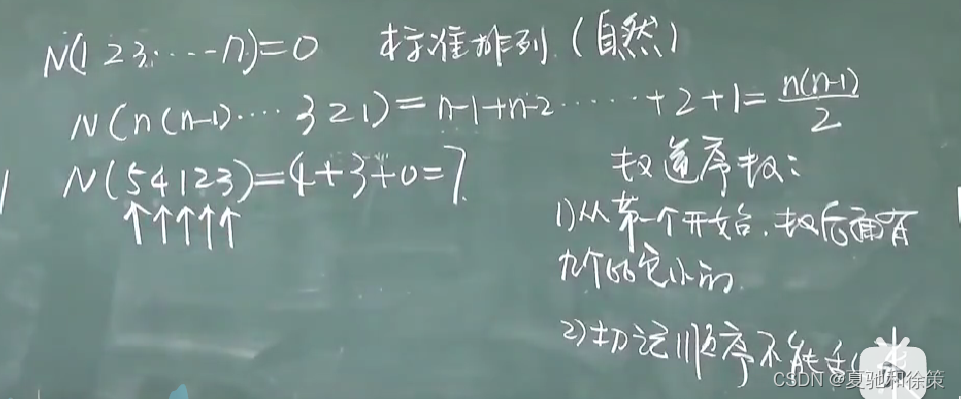 N(1 2 3 ⋯ n)=0 标准排列（自然）
N(n(n-1)⋯3 2 1)=n-1+n-2⋯⋯+2+1=n(n-1)/2
N(54123)=4+3+0=7
↑↑↑↑↑
找逆序数：
1)从第一个开始，数后面有
几个比它小的
2)切记顺序不能
CSDN @夏驰和徐策